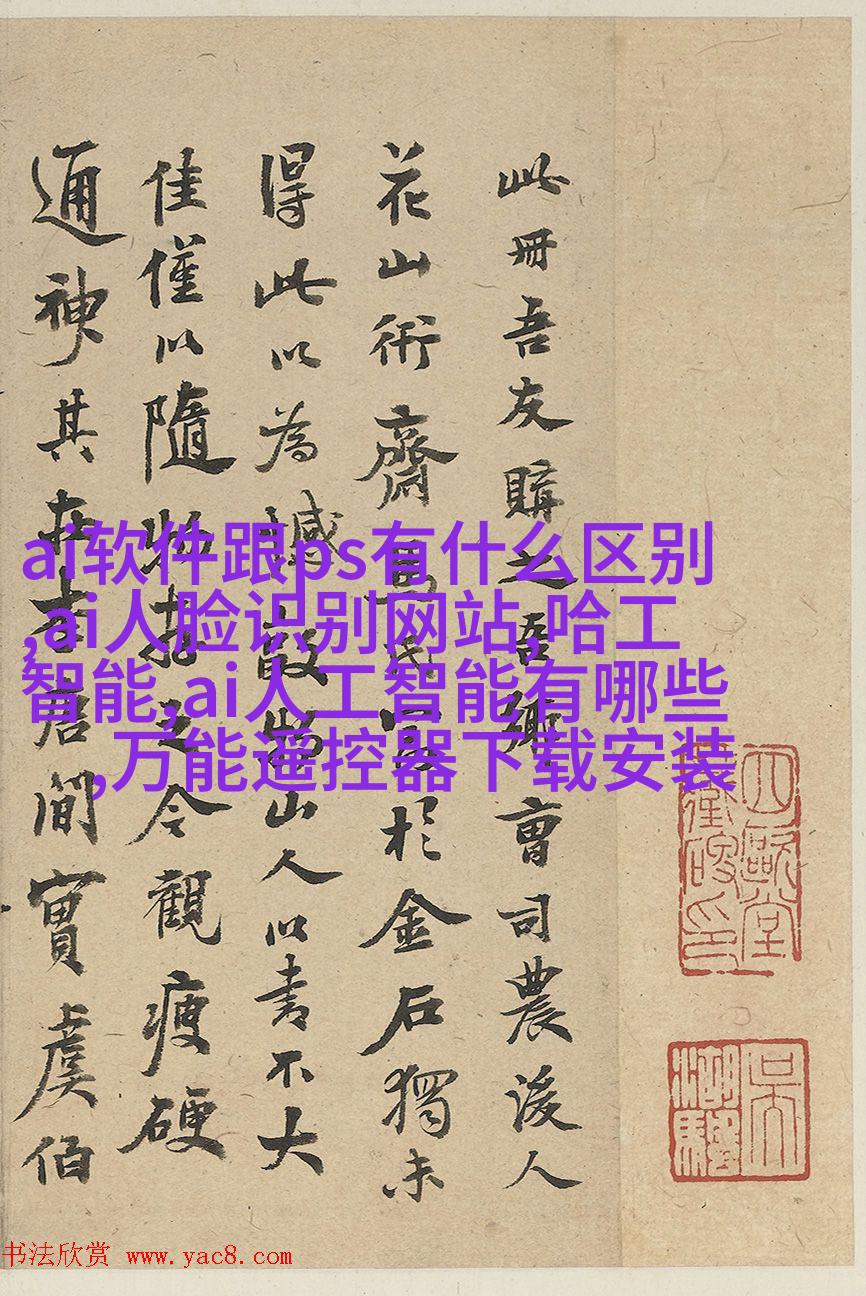 此冊吾友購之吾鄉曹司農後人
花山術齋於金石獨未
得此以為憾山人以書不大
佳僅以隨物之今觀瘦硬
通神其在間實虞伯
ai软件跟ps有什么区别
,ai人脸识别网站,哈工
智能,ai人工智能有哪些
,万能遥控器下载安装
四歐堂
书法欣赏 www.yac8.com